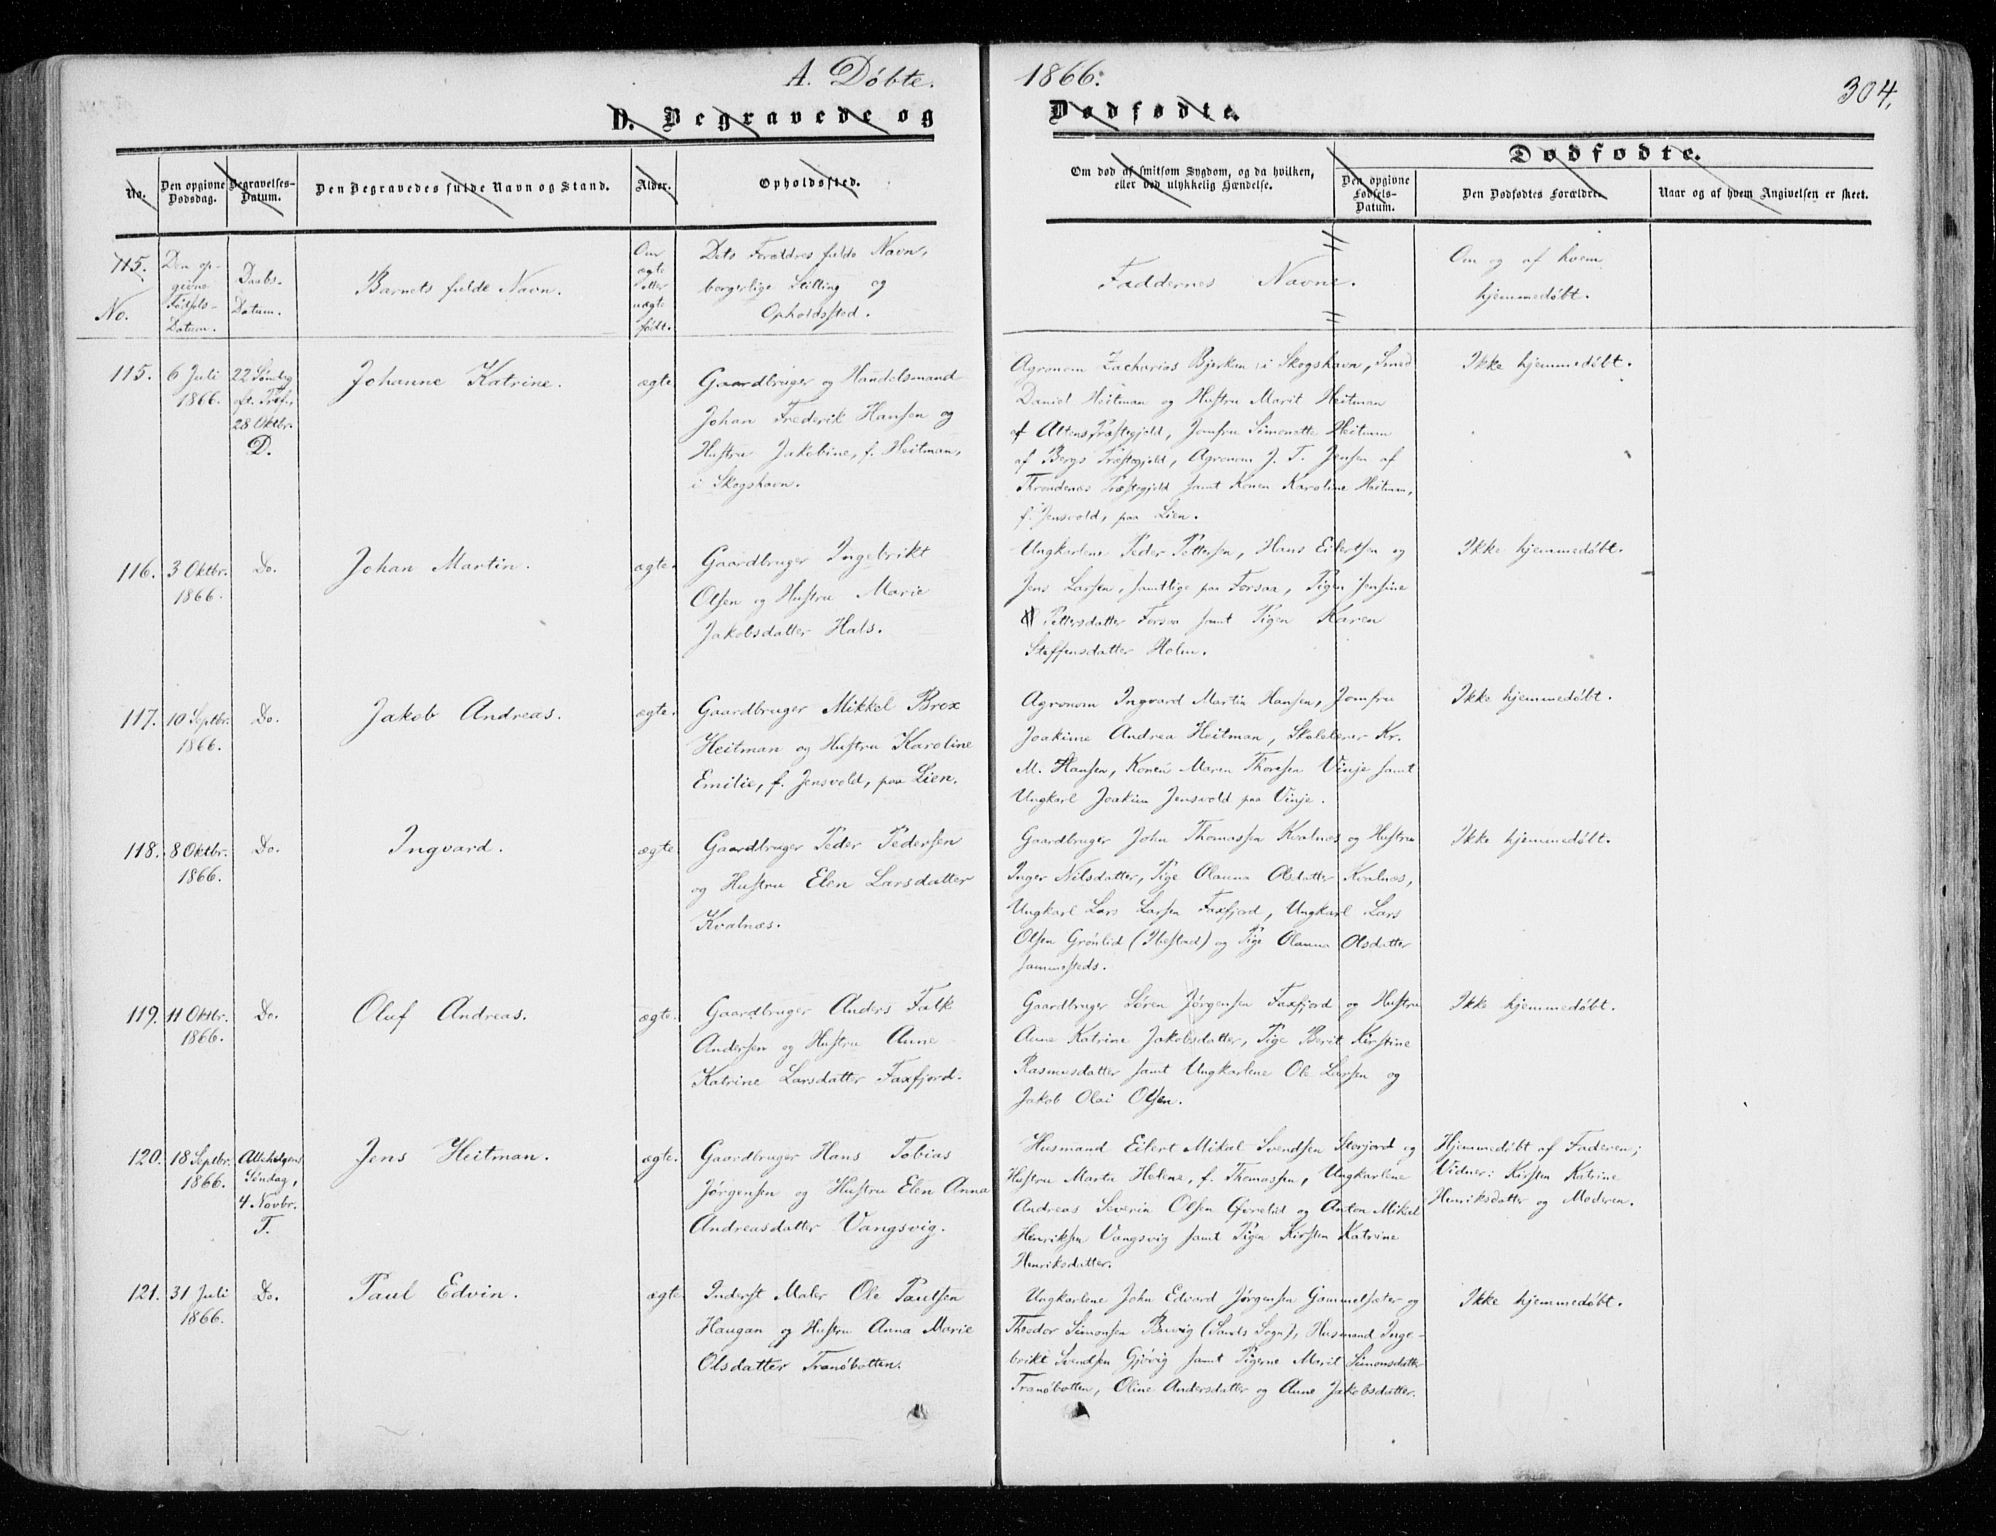 A. Døbte. 1866. 304.
D. Begravede og Dødfødte.
No.
Den opgivne Dødsdag.
Begravelses-Datum.
Den Begravedes fulde Navn og Stand.
Alder.
Opholdssted.
Om død af smitsom Sygdom, og da hvilken, eller ved ulykkelig Hændelse.
Dødfødte.
Den opgivne Fødsels-Datum.
Den Dødfødtes Forældre.
Naar og af hvem Angivelsen er skeet.
115.
No.
Den op-
givne
Fødsels-
Datum.
Daabs-
Datum.
Barnets fulde Navn.
Om
ægte
eller
uægte
født.
Dets Forældres fulde Navn,
borgerlige Stilling og
Opholdssted.
Faddernes Navne.
Om og af hvem
hjemmedøbt.
115.
6 Juli
1866.
22 Søndag
eft. Tref.
28 Oktbr.
D.
Johanne Katrine.
ægte
Gaardbruger og Handelsmand
Johan Frederik Hansen og
Hustru Jakobine, f. Heitman,
i Skogshavn.
Agronom Zacharias Bjerkan i Skogshavn, Smed
Daniel Heitman og Hustru Marit Heitman
af Altens Præstegjeld, Jomfru Simonette Heitman
af Bergs Præstegjeld, Agronom J. T. Jensen af
Throndenes Præstegjeld samt Konen Karoline Heitman,
f. Jensvold, paa Lien.
Ikke hjemmedøbt.
116.
3 Oktbr.
1866.
Do.
Johan Martin.
ægte.
Gaardbruger Ingebrikt
Olsen og Hustru Marie
Jakobsdatter Hals.
Ungkarlene Peder Pettersen, Hans Eilertsen og
Jens Larsen, samtlige paa Forsaa, Pigen Jensine
Pettersdatter Forsaa samt Pigen Karen
Steffensdatter Holm.
Ikke hjemmedøbt.
117.
10 Septbr.
1866.
Do.
Jakob Andreas.
ægte.
Gaardbruger Mikkel Brox
Heitman og Hustru Karoline
Emilie, f. Jensvold, paa Lien.
Agronom Ingvard Martin Hansen, Jomfru
Joakime Andrea Heitman, Skolelærer Kr.
M. Hansen, Konen Maren Thoresen Vinje samt
Ungkarl Joakim Jensvold paa Vinje.
Ikke hjemmedøbt.
118.
8 Oktbr.
1866.
Do.
Ingvard.
ægte
Gaardbruger Peder Pedersen
og Hustru Elen Larsdatter
Kvalnæs.
Gaardbruger John Thomassen Kvalnæs og Hustru
Inger Nilsdatter, Pige Olauna Olsdatter Kvalnæs,
Ungkarl Lars Larsen Faxfjord, Ungkarl Lars
Olsen Grønlid (Ibestad) og Pige Olauna Olsdatter
sammesteds.
Ikke hjemmedøbt.
119.
11 Oktbr.
1866.
Do.
Oluf Andreas.
ægte.
Gaardbruger Anders Falk
Andersen og Hustru Anne
Katrine Larsdatter Faxfjord.
Gaardbruger Søren Jørgensen Faxfjord og Hustru
Anne Katrine Jakobsdatter, Pige Berit Kirstine
Rasmusdatter samt Ungkarlene Ole Larsen og
Jakob Olai Olsen.
Ikke hjemmedøbt.
120.
18 Septbr.
1866.
Allehelgens
Søndag,
4 Novbr.
T.
Jens Heitman.
ægte.
Gaardbruger Hans Tobias
Jørgensen og Hustru Elen Anna
Andreasdatter Vangsvig.
Husmand Eilert Mikal Svendsen Storjord og
Hustru Marta Helene, f. Thomassen, Ungkarlene
Andreas Severin Olsen Øvrelid og Anton Mikal
Henriksen Vangsvig samt Pigen Kirsten Katrine
Henriksdatter.
Hjemmedøbt af Faderen;
Vidner: Kirsten Katrine
Henriksdatter og Moderen.
121.
31 Juli
1866.
Do.
Paul Edvin.
ægte
Inderst Maler Ole Paulsen
Haugan og Hustru Anna Marie
Olsdatter Tranøbotten.
Ungkarlene John Edvard Jørgensen Gammelsæter og
Theodor Simonsen Buvig (Sands Sogn), Husmand Inge-
brikt Svendsen Gjøvig samt Pigerne Marit Simonsdatter
Tranøbotten, Oline Andersdatter og Anne Jakobsdatter.
Ikke hjemmedøbt.